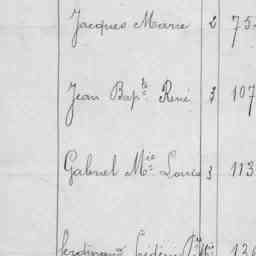 Jacques Marie 2 75
Jean Bapte René 3 107
Gabriel Mie Louis 3 113
ferdinand frédéric